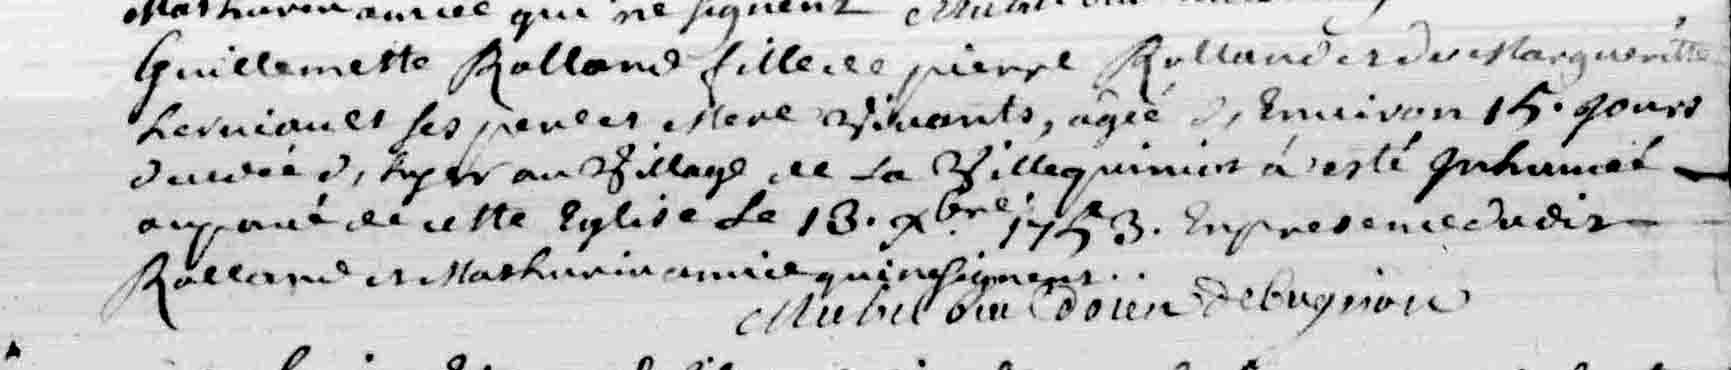 Mathurin amice qui ne signent
Guillemette Rolland fille de pierre Rolland et de Margueritte
herviault ses pere et mere Vivants, agée d, Environ 15. jours
decedée d, hyer au Village de La Villequiniot á esté Inhumeé
au pavé de cette Eglise Le 13. xbre. 1753. En presence dudit
Rolland et Mathurin amice qui ne signent..
doien de